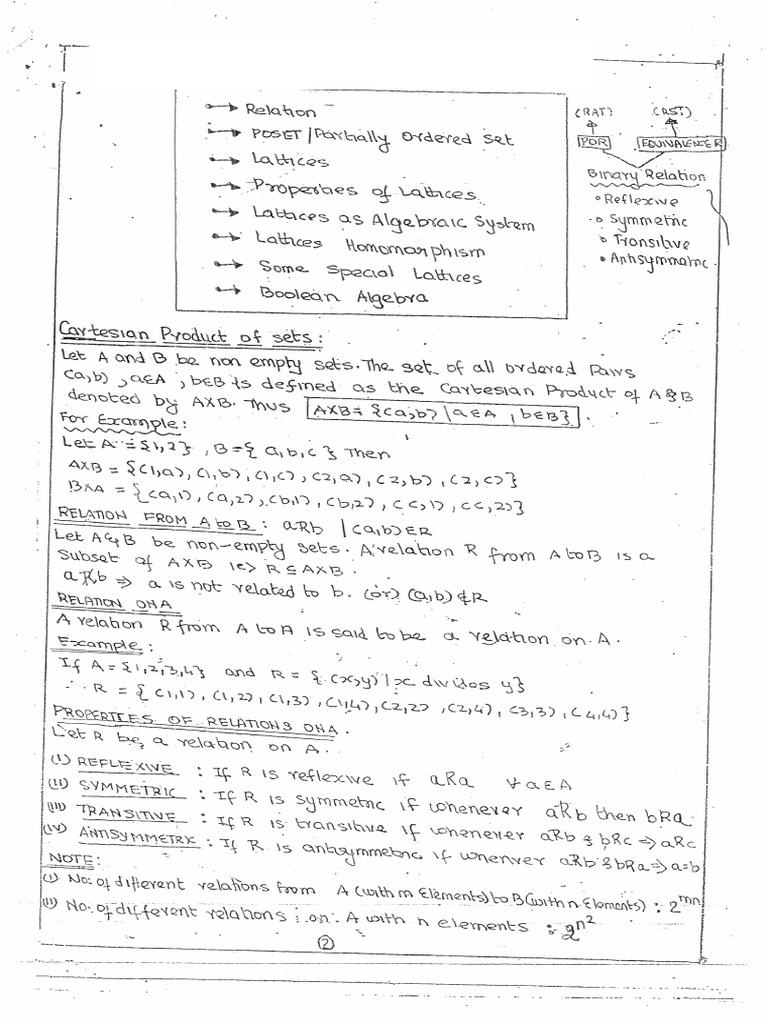 → Relation
→ POSET/Partially Ordered Set
→ Lattices
→ Properties of Lattices
→ Lattices as Algebraic System
→ Lattices Homomorphism
→ Some Special Lattices
→ Boolean Algebra
(RAT) (RST)
POR EQUIVALENCE R
Binary Relation
• Reflexive
• Symmetric
• Transitive
• Antisymmetric.
Cartesian Product of sets:
Let A and B be non empty sets. The set of all ordered Pairs
(a,b), a∈A, b∈B is defined as the Cartesian Product of A & B
denoted by A×B. Thus A×B = {(a,b) | a∈A, b∈B}.
For Example:
Let A = {1,2}, B={a,b,c} Then
A×B = {(1,a), (1,b), (1,c), (2,a), (2,b), (2,c)}
B×A = {(a,1), (a,2), (b,1), (b,2), (c,1), (c,2)}
RELATION FROM A to B: aRb | (a,b)∈R
Let A & B be non-empty sets. A relation R from A to B is a
Subset of A×B ie> R⊆A×B.
aR̸b ⇒ a is not related to b. (or) (a,b)∉R
RELATION ON A
A relation R from A to A is said to be a relation on A.
Example:
If A={1,2,3,4} and R = {(x,y) | x divides y}
∴ R = {(1,1), (1,2), (1,3), (1,4), (2,2), (2,4), (3,3), (4,4)}
PROPERTIES OF RELATIONS ON A.
Let R be a relation on A.
(i) REFLEXIVE : If R is reflexive if aRa ∀ a∈A
(ii) SYMMETRIC : If R is symmetric if whenever aRb then bRa.
(iii) TRANSITIVE : If R is transitive if whenever aRb & bRc ⇒ aRc
(iv) ANTISYMMETRIC : If R is antisymmetric if whenver aRb & bRa ⇒ a=b
NOTE:
(i) No. of different relations from A (with m Elements) to B (with n Elements) : 2^mn
(ii) No. of different relations : on A with n elements : 2^n²
2